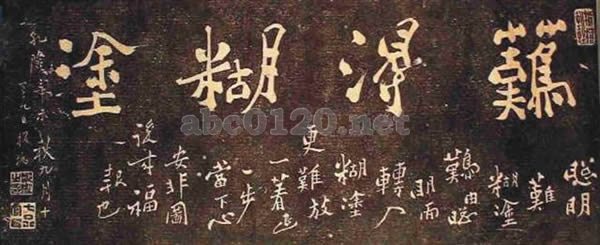 難得糊塗
聰明
難
糊塗
難由聰
明而
轉入
糊塗
更難放
一著退
一步
當下心
安非圖
後來福
報也
乾隆辛未秋九月十
有九日板橋
abc0120.net